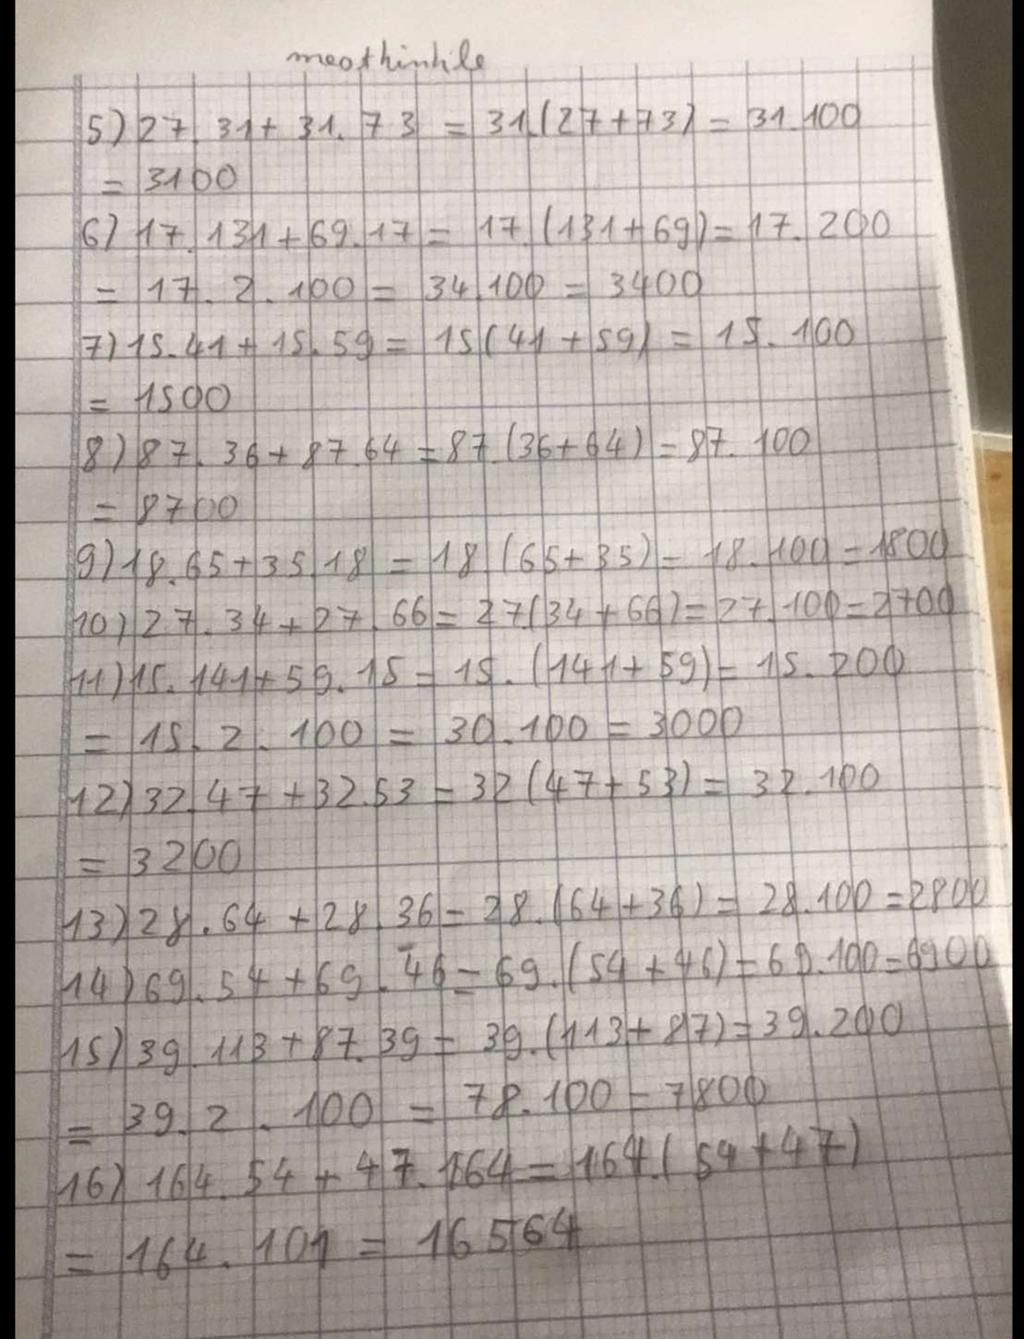 meothinhle
5) 27.31+31.73 = 31.(27+73) = 31.100
= 3100
6) 17.131+69.17 = 17.(131+69) = 17.200
= 17.2.100 = 34.100 = 3400
7) 15.41+15.59 = 15(41+59) = 15.100
= 1500
8) 87.36+87.64 = 87.(36+64) = 87.100
= 8700
9) 18.65+35.18 = 18.(65+35) = 18.100 = 1800
10) 27.34+27.66 = 27.(34+66) = 27.100 = 2700
11) 15.141+59.15 = 15.(141+59) = 15.200
= 15.2.100 = 30.100 = 3000
12) 32.47+32.53 = 32(47+53) = 32.100
= 3200
13) 28.64+28.36 = 28.(64+36) = 28.100 = 2800
14) 69.54+69.46 = 69.(54+46) = 69.100 = 6900
15) 39.113+87.39 = 39.(113+87) = 39.200
= 39.2.100 = 78.100 = 7800
16) 164.54+47.164 = 164.(54+47)
= 164.101 = 16564